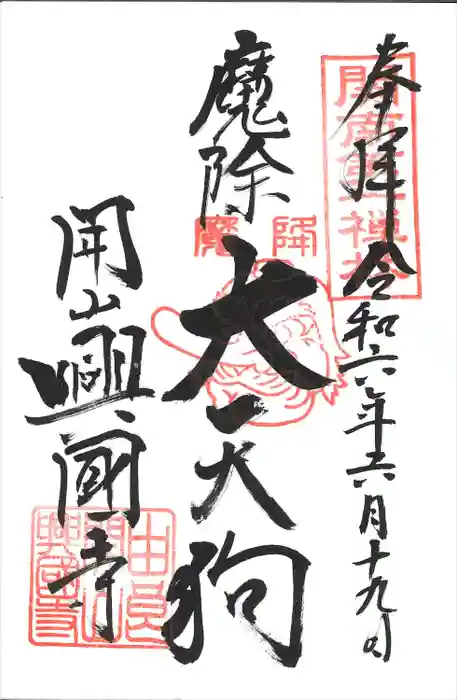 奉拝 令和六年六月十九日
魔除
降魔
大天狗
開山興國寺
由良
開山
興國寺